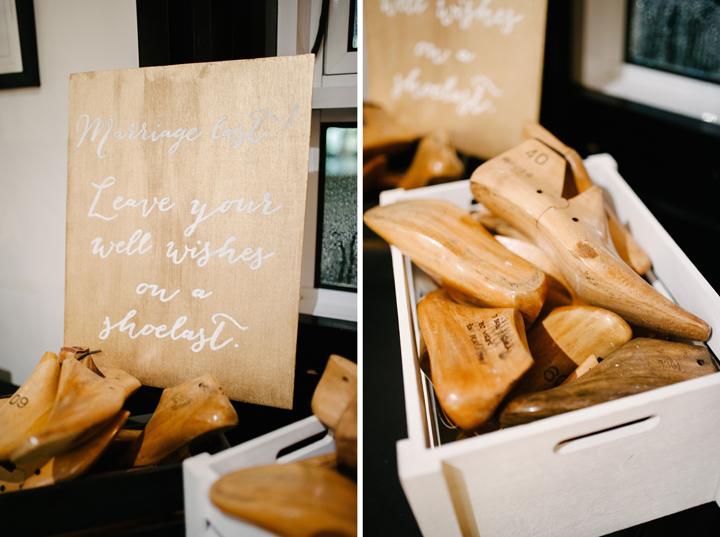 Marriage last!
Leave your
well wishes
on a
shoelast.
well wishes
on a
shoelast.
40
09
60